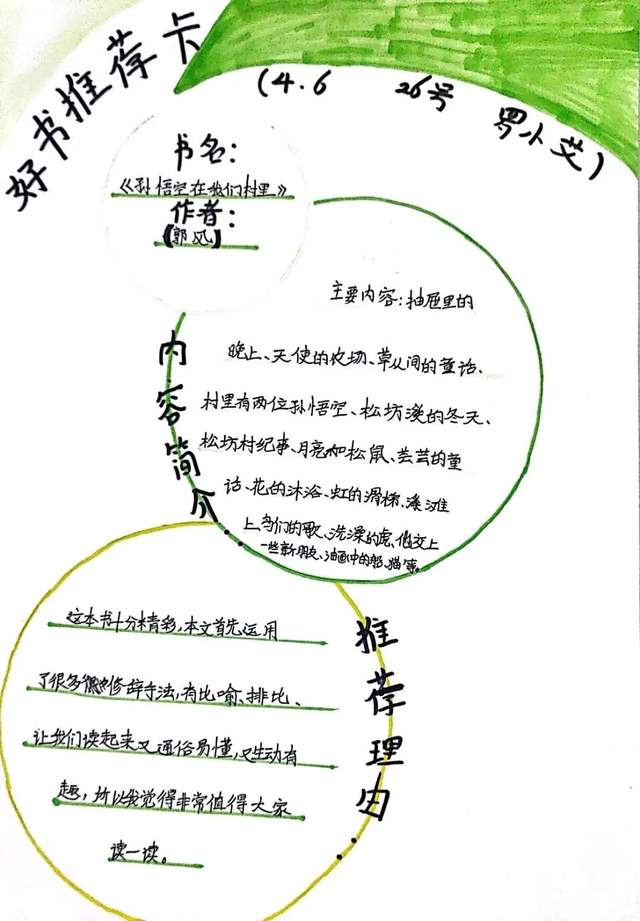 好书推荐卡
(4.6 26号 罗小艾)
书名:
《孙悟空在我们村里》
作者:
【郭风】
内容简介:
主要内容:抽屉里的
晚上、天使的农场、草丛间的童话、
村里有两位孙悟空、松坊溪的冬天、
松坊村纪事、月亮和松鼠、芸芸的童
话、花的沐浴、虹的滑梯、溪滩
上、鸟们的歌、洗澡的虎、他交上
一些新朋友、油画中的船、猫等。
推荐理由:
这本书十分精彩,本文首先运用
了很多修辞手法,有比喻、排比、
让我们读起来又通俗易懂,又生动有
趣,所以我觉得非常值得大家
读一读。